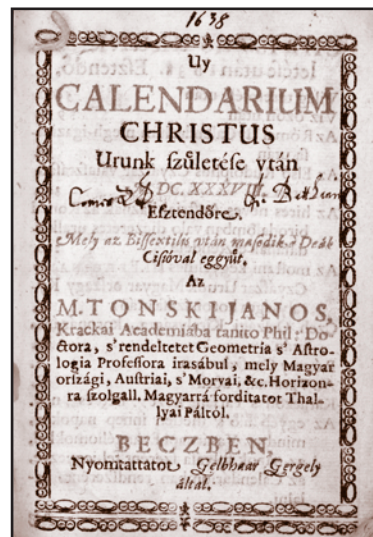 1638
Uy
CALENDARIUM
CHRISTUS
Urunk születése vtán
M.DC.XXXVIII.
Esztendőre.
Mely az Bissextilis vtán masodik. Deák
Cisióval eggyüt.
Az
M. TONSKI JANOS,
Krackai Academiába tanito Phil: Do-
ctora, s' rendeltetet Geometria s' Astro-
logia Professora irasábul, mely Magyar
országi, Austriai, s' Morvai, &c. Horizon-
ra szolgall. Magyarrá forditatot Thal-
lyai Páltól.
BECZBEN,
Nyomtattatot, Gelbhaar Gergely
által.